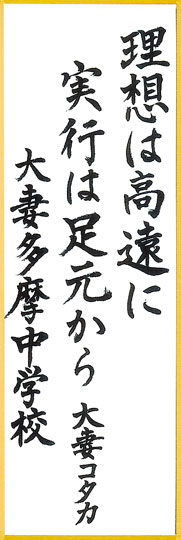 理想は高遠に
実行は足元から
大妻コタカ
大妻多摩中学校